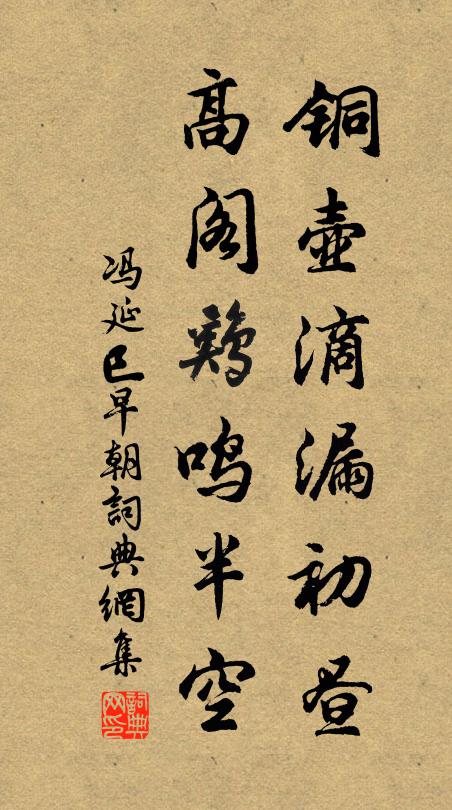 铜壷滴漏初昼
髙阁鷄鸣半空
冯延巳早朝詞典網集
詞典网印